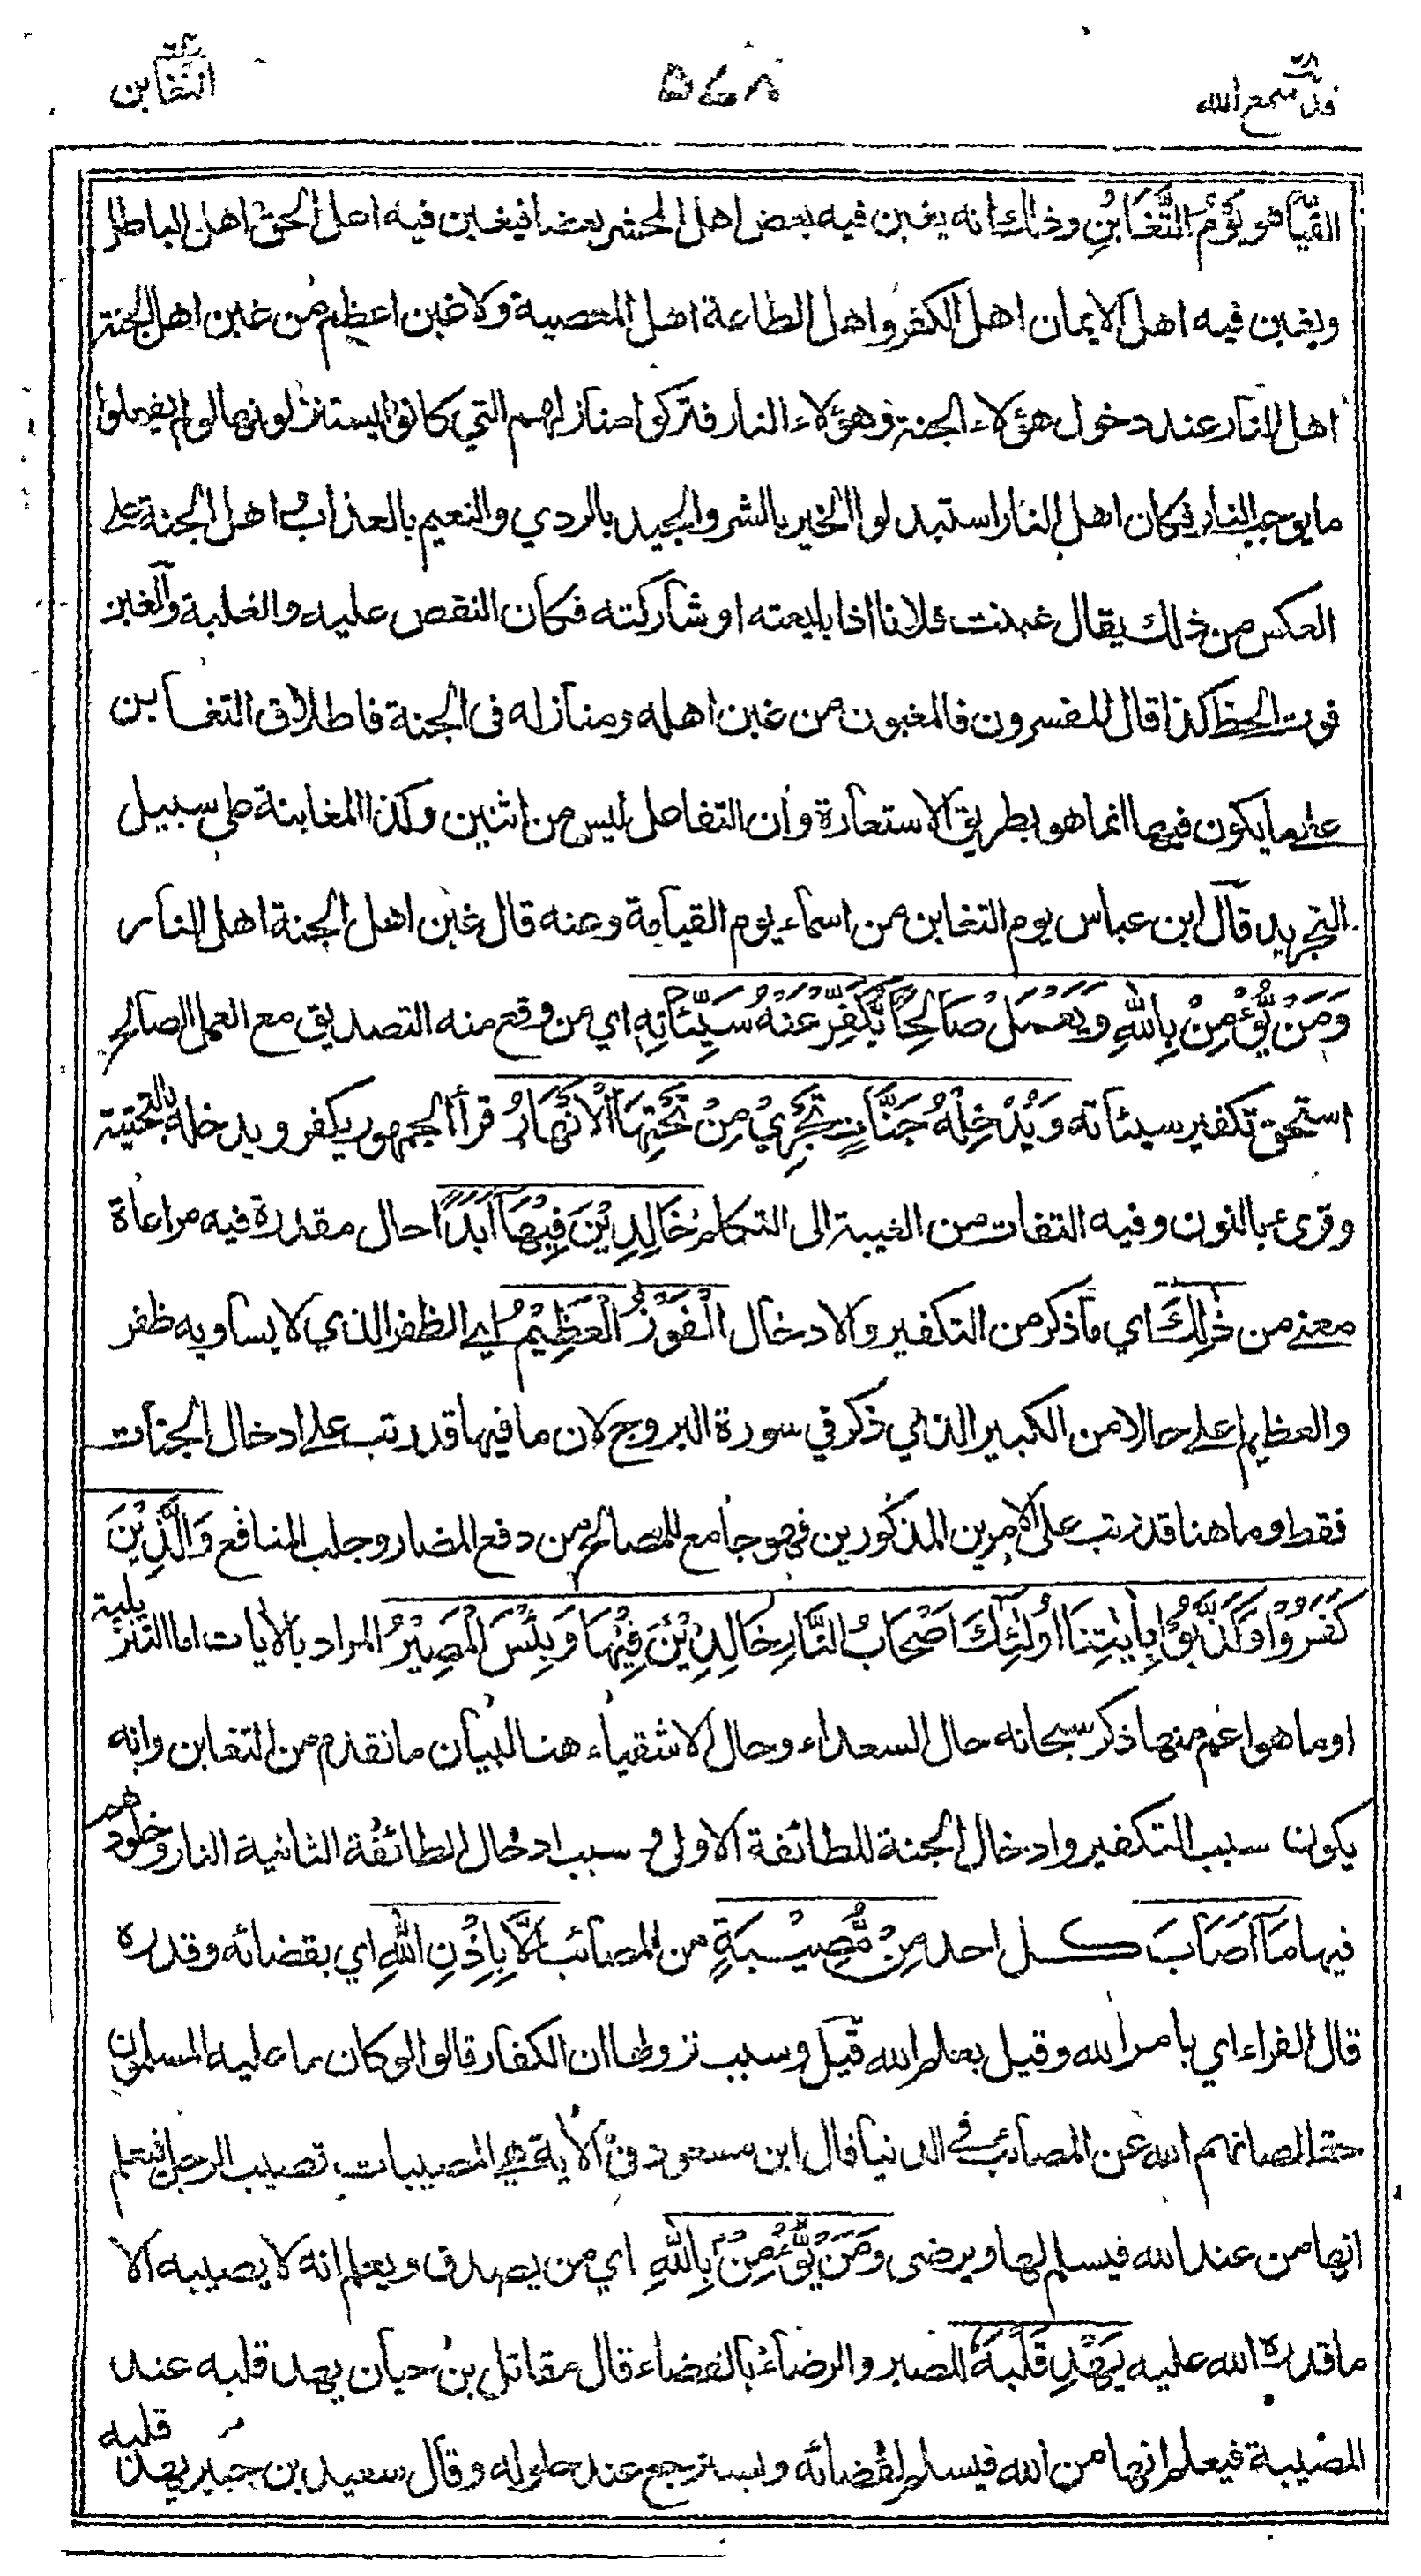 قد سمع الله ٢٨
٥٤٨
التغابن
القيامة هو يَوْمُ التَّغَابُنِ وذلك انه يغبن فيه بعض اهل المحشر بعضا فيغبن فيه اهل الحق اهل الباطل
ويغبن فيه اهل الايمان اهل الكفر واهل الطاعة اهل المعصية ولا غبن اعظم من غبن اهل الجنة
اهل النار عند دخول هؤلاء الجنة وهؤلاء النار فتركوا منازلهم التي كانوا يستنزلونها لو لم يفعلوا
ما يوجب النار فكان اهل النار استبدلوا الخير بالشر والجيد بالردي والنعيم بالعذاب و اهل الجنة على
العكس من ذلك يقال غبنت فلانا اذا بايعته او شاركته فكان النقص عليه والغلبة والغبن
فوت الحظ كذا قال المفسرون فالمغبون من غبن اهله ومنازله فى الجنة فاطلاق التغابن
على ما يكون فيها انما هو بطريق الاستعارة وان التفاعل ليس من اثنين وكذا المغابنة على سبيل
التجريد قال ابن عباس يوم التغابن من اسماء يوم القيامة وعنه قال غبن اهل الجنة اهل النار
وَمَنْ يُّؤْمِنْ بِاللهِ وَيَعْمَلْ صَالِحًا يُّكَفِّرْ عَنْهُ سَيِّئَاتِهِ اي من وقع منه التصديق مع العمل الصالح
استحق تكفير سيئاته وَيُدْخِلْهُ جَنَّاتٍ تَجْرِيْ مِنْ تَحْتِهَا الْاَنْهَارُ قرأ الجمهور يكفر ويدخله بالتحتية
وقرئ بالنون وفيه التفات من الغيبة الى التكلم خَالِدِيْنَ فِيْهَا اَبَدًا حال مقدرة فيه مراعاة
معنى من ذٰلِكَ اي ما ذكر من التكفير والادخال الْفَوْزُ الْعَظِيْمُ اي الظفر الذي لا يساويه ظفر
والعظيم اعلى حالا من الكبير الذي ذكر في سورة البروج لان ما فيها قد رتب على ادخال الجنات
فقط وما هنا قد رتب على الامرين المذكورين فهو جامع للمصالح من دفع المضار وجلب المنافع وَالَّذِيْنَ
كَفَرُوْا وَكَذَّبُوْا بِاٰيٰتِنَا اُولٰئِكَ اَصْحَابُ النَّارِ خَالِدِيْنَ فِيْهَا وَبِئْسَ الْمَصِيْرُ المراد بالايات اما التنزيلية
او ما هو اعم منها ذكر سبحانه حال السعداء وحال الاشقياء هنا لبيان ما تقدم من التغابن وانه
يكون سبب التكفير وادخال الجنة للطائفة الاولى و سبب ادخال الطائفة الثانية النار وخلودهم
فيها مَا اَصَابَ كل احد مِنْ مُّصِيْبَةٍ من المصائب اِلَّا بِاِذْنِ اللهِ اي بقضائه وقدره
قال الفراء اي بامر الله وقيل بعلم الله قيل وسبب نزولها ان الكفار قالوا لو كان ما عليه المسلمون
حقا لصانهم الله عن المصائب في الدنيا قال ابن مسعود في الاية هي المصيبات تصيب الرجل فيعلم
انها من عند الله فيسلم لها ويرضى وَمَنْ يُّؤْمِنْ بِاللهِ اي من يصدق ويعلم انه لا يصيبه الا
ما قدره الله عليه يَهْدِ قَلْبَهُ للصبر والرضاء بالقضاء قال مقاتل بن حيان يهد قلبه عند
المصيبة فيعلم انها من الله فيسلم لقضائه ويسترجع عند حلوله وقال سعيد بن جبير يهد قلبه